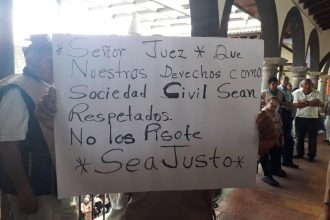 *Señor Juez * Que
Nuestros Derechos como
Sociedad Civil Sean
Respetados.
No los Pisote
*Sea Justo*